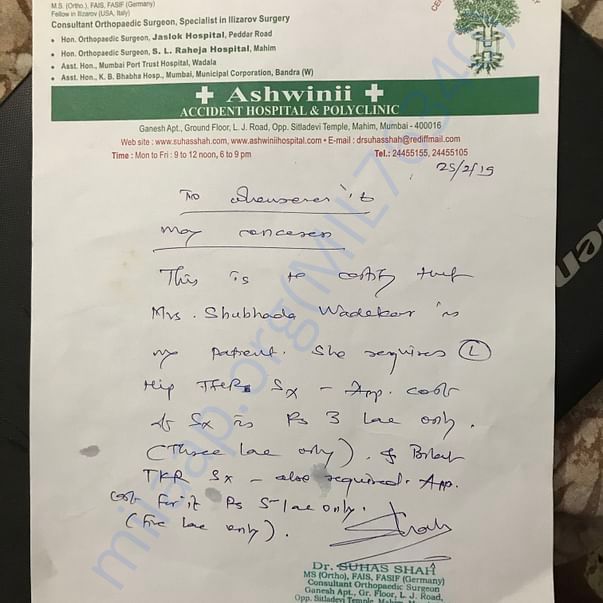 M.S. (Ortho.), FAIS, FASIF (Germany)
Fellow in Ilizarov (USA, Italy)
Consultant Orthopaedic Surgeon, Specialist in Ilizarov Surgery
• Hon. Orthopaedic Surgeon, Jaslok Hospital, Peddar Road
• Hon. Orthopaedic Surgeon, S. L. Raheja Hospital, Mahim
• Asst. Hon., Mumbai Port Trust Hospital, Wadala
• Asst. Hon., K. B. Bhabha Hosp., Mumbai, Municipal Corporation, Bandra (W)
Ashwinii
ACCIDENT HOSPITAL & POLYCLINIC
Ganesh Apt., Ground Floor, L. J. Road, Opp. Sitladevi Temple, Mahim, Mumbai - 400016
Web site : www.suhasshah.com, www.ashwiniihospital.com • E-mail : drsuhasshah@rediffmail.com
Time : Mon to Fri : 9 to 12 noon, 6 to 9 pm Tel.: 24455155, 24455105
25/2/19
To whomsoever it
may concern
This is to certify that
Mrs. Shubhada Wadekar is
my patient. She requires (L)
Hip THR Sx - App. cost
of Sx is Rs 3 lac only.
(Three lac only). & Bilat
TKR Sx - also required. App.
cost for it Rs 5 lac only.
(Five lac only).
Dr. SUHAS SHAH
MS (Ortho), FAIS, FASIF (Germany)
Consultant Orthopaedic Surgeon
Ganesh Apt., Gr. Floor, L. J. Road,
Opp. Sitladevi Temple, Mahim,